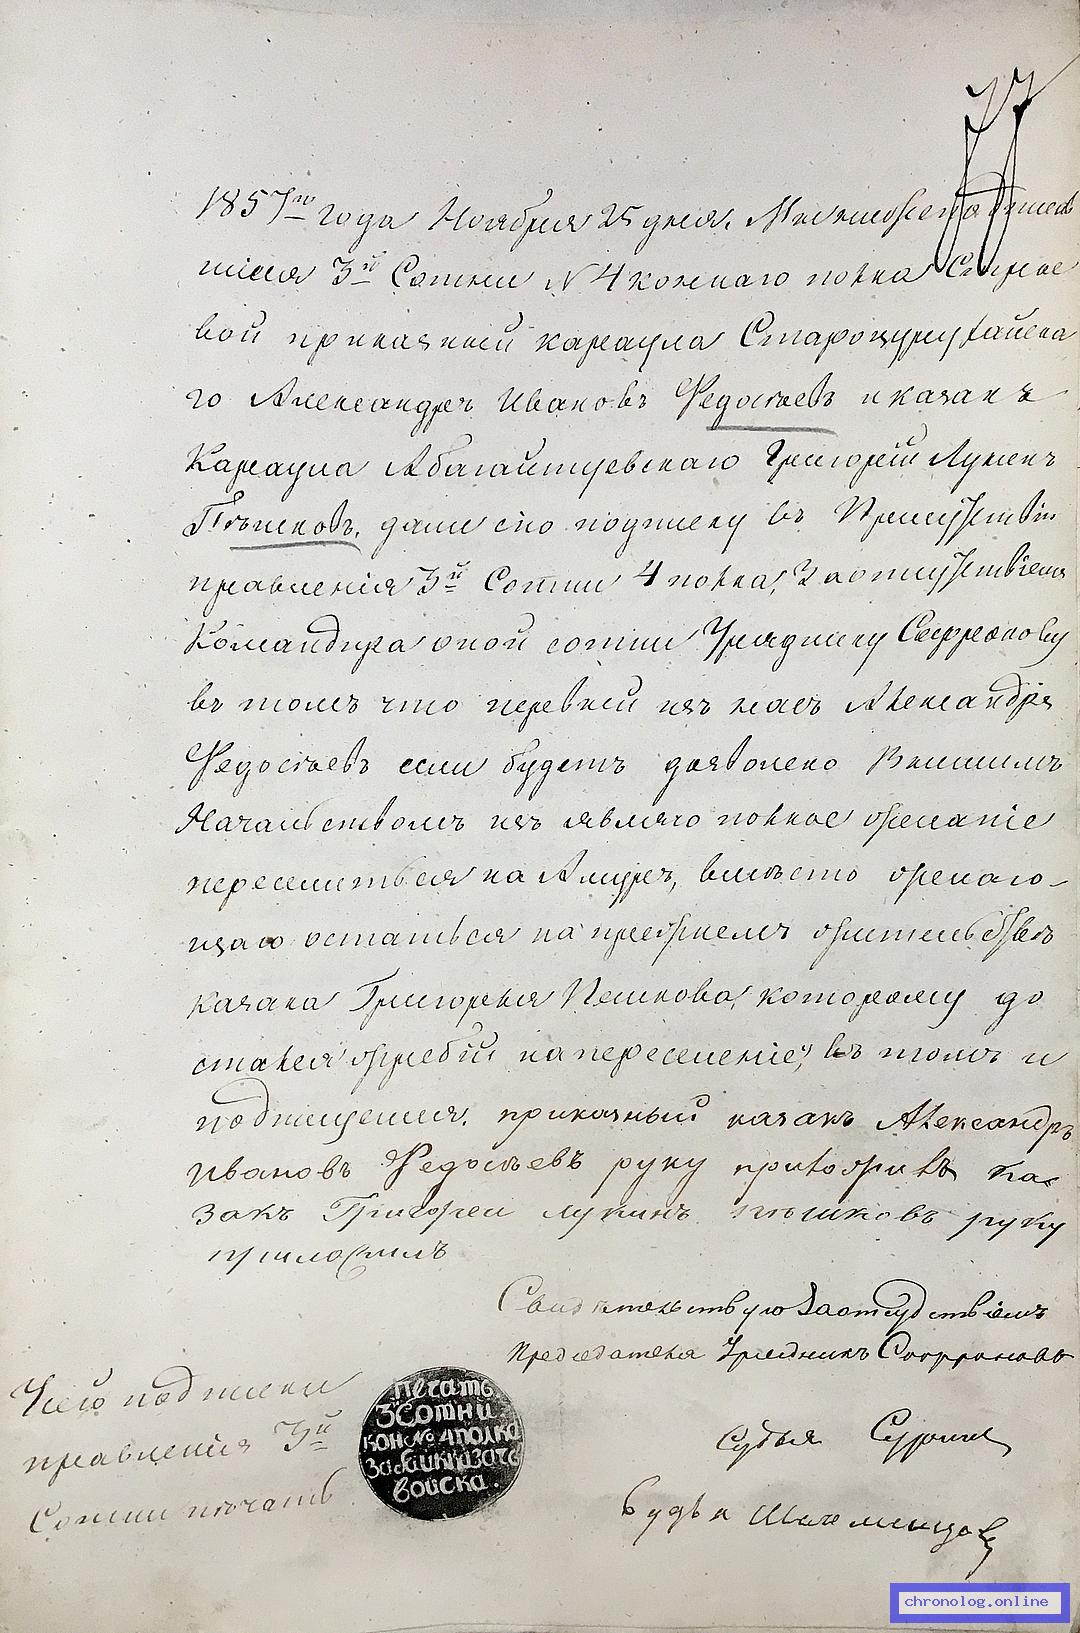 77
1857го года Ноября 25 дня. Мы нижеподписав
шiися 3й Сотни N 4 конного полка Станое
вой приказный караула Староцурухайска
го Александръ Ивановъ Федосѣевъ и казакъ
Караула Абагайтуевскаго Григорiй Лукинъ
Пѣшковъ, дали сiю подписку въ Присуствiи
правленiя 3й Сотни 4 полка, За отсуствiемъ
Командира оной сотни Уряднику Сафронову
въ томъ что первый изъ насъ Александръ
Федосѣевъ если будетъ дозволено Вышимъ
Началъствомъ изъявляю полное желанiе
переселиться на Амуръ, вмѣсто желаю-
щаго остаться на прежнемъ жительствѣ
казака Григорья Пешкова, которому до
стался жребiй на переселенiе, въ томъ и
подпишемся. приказный казакъ Александръ
Ивановъ Федосѣевъ руку приложилъ ка
закъ Григорей лукинъ пѣшковъ руку
приложилъ
Свидѣтельствую За отсудствiемъ
Председателя Урядникъ Сафроновъ
Чего подписки
правленiя 3й
Сотни печать
Печать
3 Сотни
кон № 4 полка
Забайк каз
войска.
Судья
Судья
chronolog.online